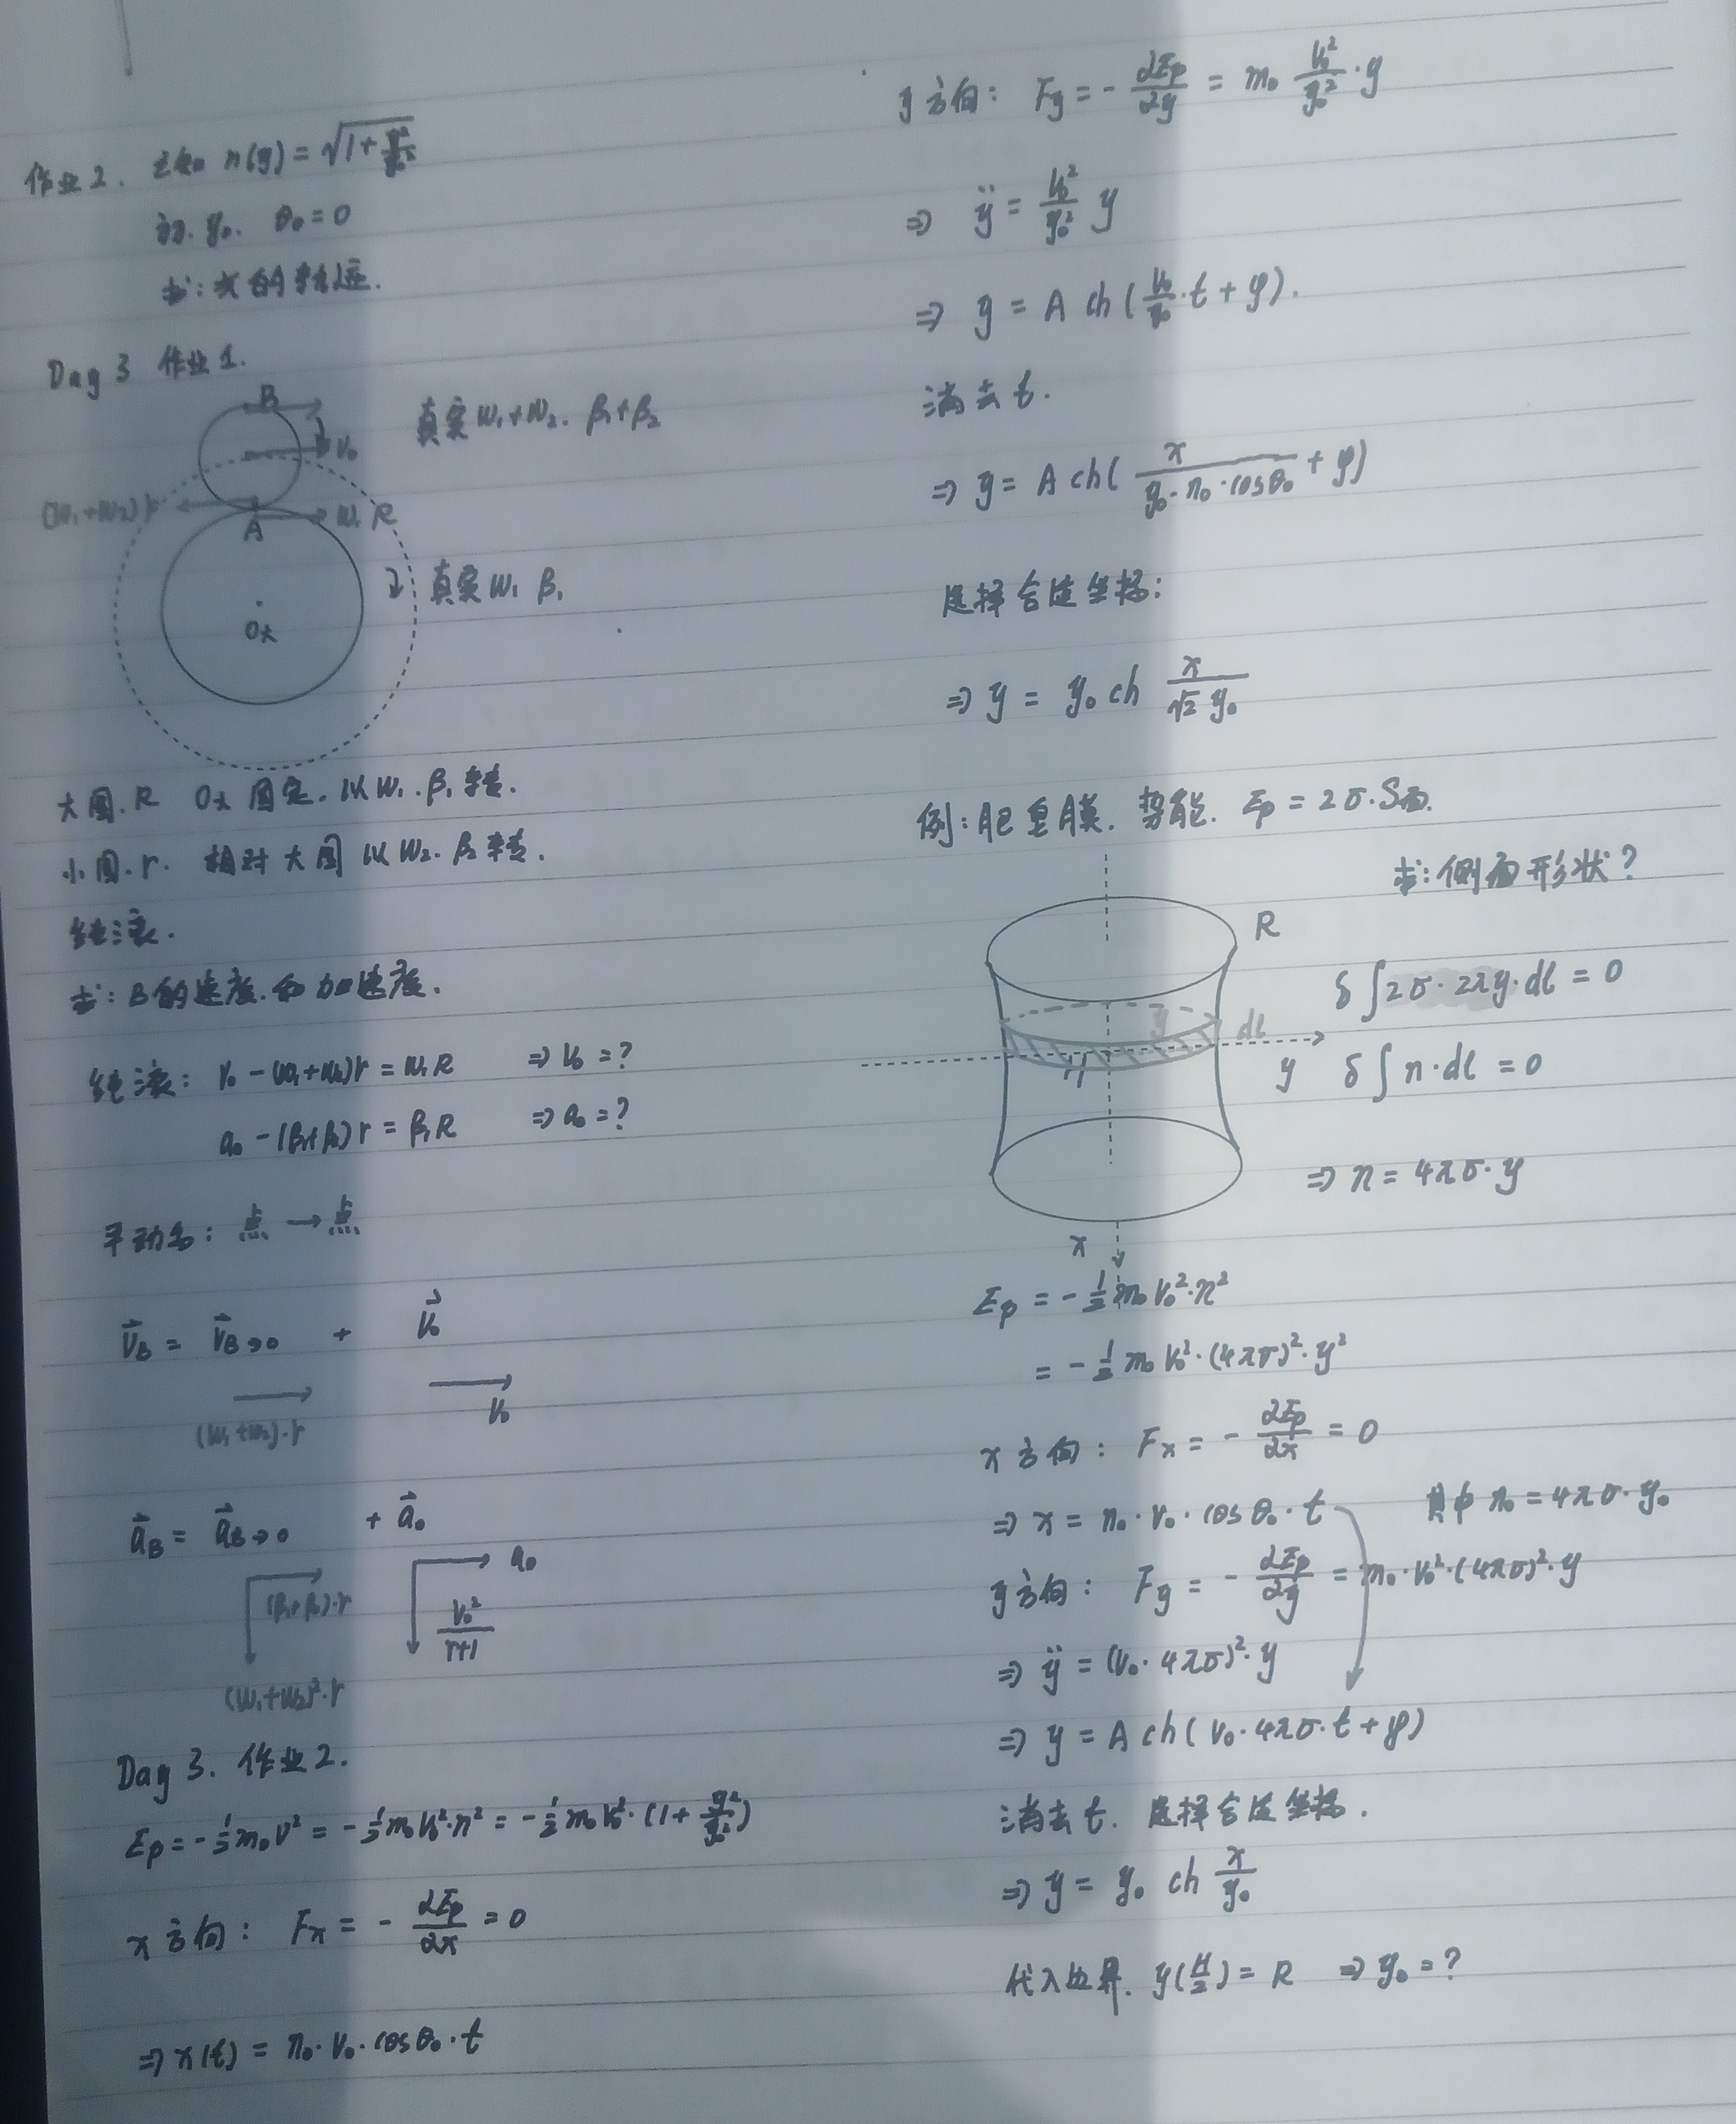 作业2. 已知 n(y) = √(1+y²/y₀²)
初. y₀. θ₀ = 0
求: 光的轨迹.
Day 3 作业1.
B
v₀
真实 w₁+w₂. β₁+β₂
(w₁+w₂)r
A
w₁R
真实 w₁ β₁
O大
大圆. R O大 固定. 以 w₁. β₁ 转.
小圆. r. 相对大圆 以 w₂. β₂ 转.
纯滚.
求: B的速度. 和加速度.
纯滚: v₀ - (w₁+w₂)r = w₁R ⇒ v₀ = ?
a₀ - (β₁+β₂)r = β₁R ⇒ a₀ = ?
平动系: 点 → 点
v⃗_B = v⃗_B→0 + v⃗₀
(w₁+w₂)·r v₀
a⃗_B = a⃗_B→0 + a⃗₀
(β₁+β₂)·r a₀
(w₁+w₂)²·r v₀²/(r+1)
Day 3. 作业2.
Ep = -½m₀v² = -½m₀v₀²·n² = -½m₀v₀²·(1+y²/y₀²)
x方向: Fx = -∂Ep/∂x = 0
⇒ x(t) = n₀·v₀·cosθ₀·t
y方向: Fy = -∂Ep/∂y = m₀ v₀²/y₀²·y
⇒ ÿ = v₀²/y₀² y
⇒ y = A ch(v₀/y₀·t+φ).
消去t.
⇒ y = A ch(x/(y₀·n₀·cosθ₀)+φ)
选择合适坐标:
⇒ y = y₀ ch x/(√2 y₀)
例: 肥皂膜. 势能. Ep = 2σ·S面.
求: 侧面形状?
R
δ∫2σ·2πy·dl = 0
y dl
y δ∫n·dl = 0
⇒ n = 4πσ·y
x
Ep = -½m₀v₀²·n²
= -½m₀v₀²·(4πσ)²·y²
x方向: Fx = -∂Ep/∂x = 0
⇒ x = n₀·v₀·cosθ₀·t 其中 n₀ = 4πσ·y₀
y方向: Fy = -∂Ep/∂y = m₀·v₀²·(4πσ)²·y
⇒ ÿ = (v₀·4πσ)²·y
⇒ y = A ch(v₀·4πσ·t+φ)
消去t. 选择合适坐标.
⇒ y = y₀ ch x/y₀
代入边界. y(H/2) = R ⇒ y₀ = ?